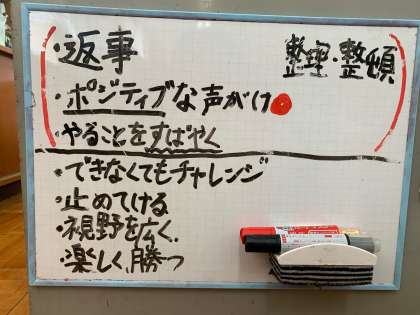 ・返事
整理・整頓
・ポジティブな声がけ
・やることをすばやく
・できなくてもチャレンジ
・止めてける
・視野を広く、
・楽しく、勝つ